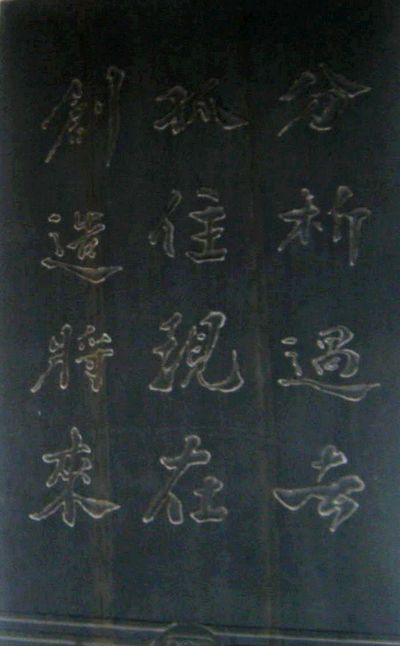 分析過去
抓住現在
創造將來